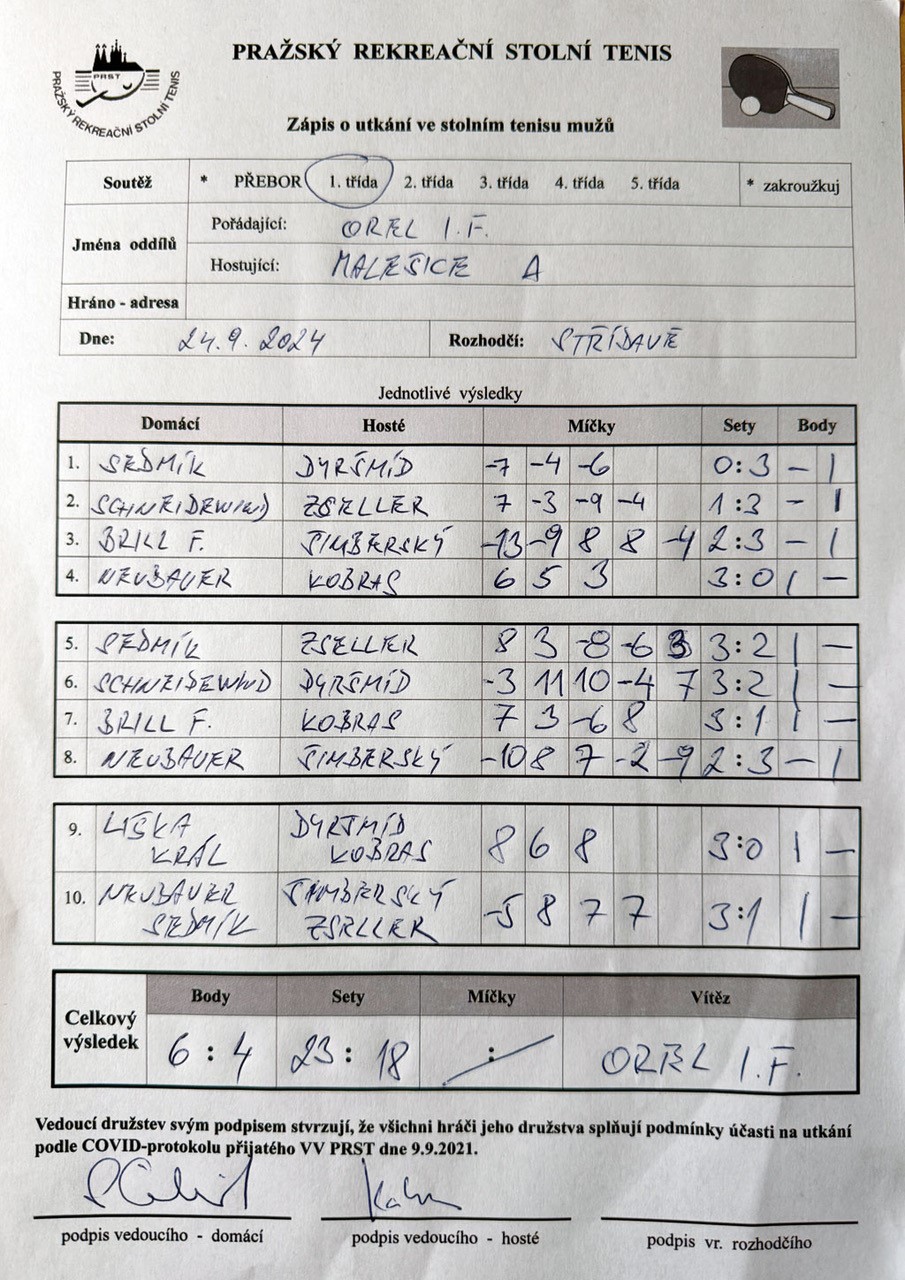 PRAŽSKÝ REKREAČNÍ STOLNÍ TENIS
PRST
PRAŽSKÝ REKREAČNÍ STOLNÍ TENIS
Zápis o utkání ve stolním tenisu mužů
Soutěž * PŘEBOR 1. třída 2. třída 3. třída 4. třída 5. třída * zakroužkuj
Jména oddílů
Pořádající: OREL I.F.
Hostující: MALEŠICE A
Hráno - adresa
Dne: 24.9.2024 Rozhodčí: STŘÍDAVĚ
Jednotlivé výsledky
Domácí Hosté Míčky Sety Body
1. SEDMÍK DYRŠMÍD -7 -4 -6 0:3 – 1
2. SCHNEIDEWIND ZSELLER 7 -3 -9 -4 1:3 – 1
3. BRILL F. ŠIMBERSKÝ -13 -9 8 8 -4 2:3 – 1
4. NEUBAUER KOBRAS 6 5 3 3:0 1 –
5. SEDMÍK ZSELLER 8 3 -8 -6 3 3:2 1 –
6. SCHNEIDEWIND DYRŠMÍD -3 11 10 -4 7 3:2 1 –
7. BRILL F. KOBRAS 7 3 -6 8 3:1 1 –
8. NEUBAUER ŠIMBERSKÝ -10 8 7 -2 -9 2:3 – 1
9. LIŠKA DYRŠMÍD
KRÁL KOBRAS 8 6 8 3:0 1 –
10. NEUBAUER ŠIMBERSKÝ
SEDMÍK ZSELLER -5 8 7 7 3:1 1 –
Celkový výsledek
Body Sety Míčky Vítěz
6 : 4 23 : 18 : OREL I.F.
Vedoucí družstev svým podpisem stvrzují, že všichni hráči jeho družstva splňují podmínky účasti na utkání
podle COVID-protokolu přijatého VV PRST dne 9.9.2021.
podpis vedoucího - domácí podpis vedoucího - hosté podpis vr. rozhodčího